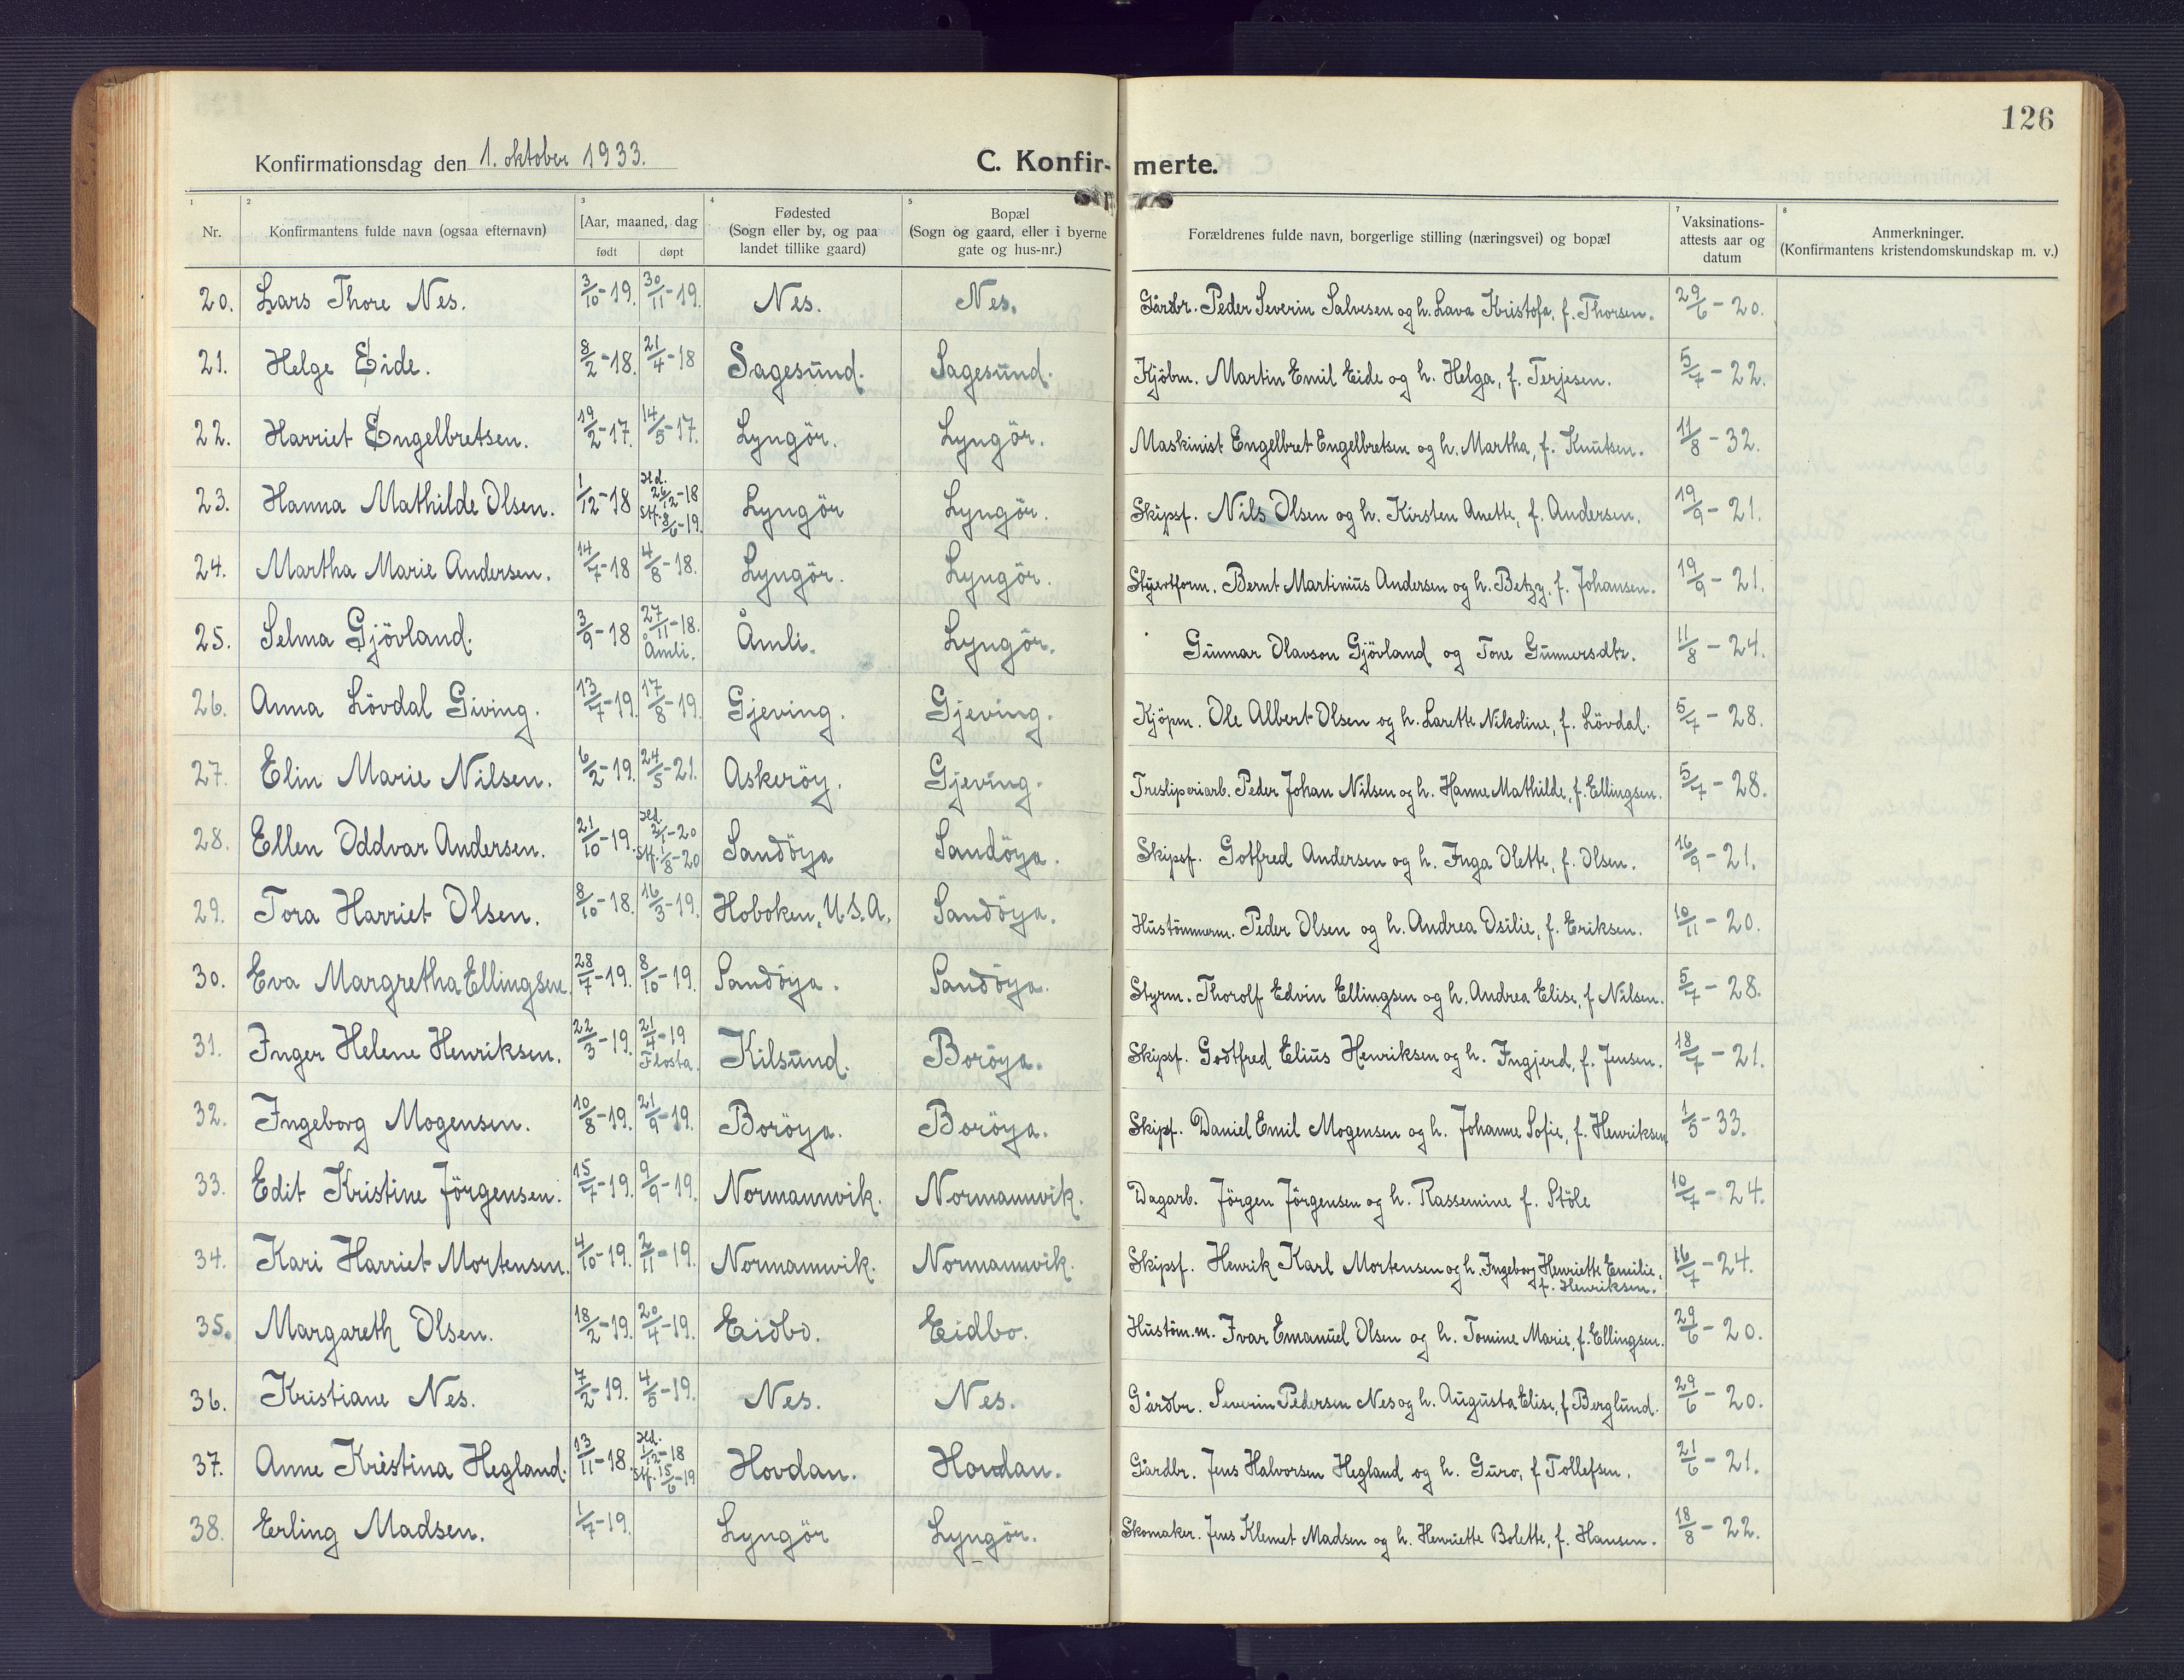 126
Konfirmationsdag den 1. oktober 1933.
C. Konfirmerte.
1 2 3 4 5 7 8
Nr.
Konfirmantens fulde navn (ogsaa efternavn)
[Aar, maaned, dag
født døpt
Fødested
(Sogn eller by, og paa
landet tillike gaard)
Bopæl
(Sogn og gaard, eller i byerne
gate og hus-nr.)
Forældrenes fulde navn, borgerlige stilling (næringsvei) og bopæl
Vaksinations-
attests aar og
datum
Anmerkninger.
(Konfirmantens kristendomskundskap m. v.)
20. Lars Thore Nes. 3/10-19. 30/11-19. Nes. Nes. Gårdbr. Peder Severin Salvesen og h. Lava Kristofa, f. Thorsen. 29/6-20.
21. Helge Eide. 8/2-18. 21/4-18 Sagesund. Sagesund. Kjöbm. Martin Emil Eide og h. Helga, f. Terjesen. 5/7-22.
22. Harriet Engelbretsen. 19/2-17. 14/5-17. Lyngör. Lyngör. Maskinist Engelbret Engelbretsen og h. Martha, f. Knutsen. 11/8-32.
23. Hanna Mathilde Olsen. 1/12-18 Hd. 26/12-18 Stf. 8/6-19. Lyngör Lyngör. Skipsf. Nils Olsen og h. Kirsten Anette, f. Andersen. 19/9-21.
24. Martha Marie Andersen. 14/7-18 4/8-18. Lyngör. Lyngör. Bernt Martinius Andersen og h. Betzy, f. Johansen. 19/9-21.
25. Selma Gjövland. 3/9-18 27/11-18. Åmli. Åmli. Lyngör. Gunnar Olavson Gjövland og Tone Gunnersdtr. 11/8-24.
26. Anna Lövdal Giving. 13/7-19. 17/8-19. Gjeving. Gjeving. Kjöpm. Ole Albert Olsen og h. Larette Nikoline, f. Lövdal. 5/7-28.
27. Elin Marie Nilsen. 6/2-19. 24/5-21. Askeröy. Gjeving. Tresliperiarb. Peder Johan Nilsen og h. Hanne Mathilde, f. Ellingsen. 5/7-28.
28. Ellen Oddvar Andersen. 21/10-19. Hd. 2/1-20 Stf. 1/8-20 Sandöya Sandöya. Skipsf. Gotfred Andersen og h. Inga Olette, f. Olsen. 16/9-21.
29. Tora Harriet Olsen. 8/10-18. 16/3-19. Hoboken, U.S.A. Sandöya. Hustömmerm. Peder Olsen og h. Andrea Osilie, f. Eriksen. 10/11-20.
30. Eva Margretha Ellingsen. 28/7-19. 8/10-19. Sandöya. Sandöya. Styrm. Thorolf Edvin Ellingsen og h. Andrea Elise, f Nilsen. 5/7-28.
31. Inger Helene Henriksen. 22/3-19. 21/4-19 Flosta. Kilsund. Boröya. Skipsf. Godtfred Elius Henriksen og h. Ingjerd, f. Jensen. 18/7-21.
32. Ingeborg Mogensen. 10/8-19. 21/9-19. Boröya. Boröya. Skipf. Daniel Emil Mogensen og h. Johanne Sofie, f. Henriksen 1/5-33.
33. Edit Kristine Jörgensen. 15/7-19. 9/9-19. Normannvik. Normannvik. Dagarb. Jörgen Jörgensen og h. Rassemine f. Stöle 10/7-24.
34. Kari Harriet Mortensen. 4/10-19. 2/11-19. Normannvik. Normannvik. Skipsf. Henrik Karl Mortensen og h. Ingeborg Henriette Emilie, 16/7-24.
f. Henriksen.
35. Margareth Olsen. 18/2-19. 20/4-19. Eidbo. Eidbo. Hustöm.m. Ivar Emanuel Olsen og h. Tomine Marie, f. Ellingsen. 29/6-20.
36. Kristiane Nes. 7/2-19. 4/5-19. Nes. Nes. Gårdbr. Severin Pedersen Nes og h. Augusta Elise, f Berglund. 29/6-20.
37. Anne Kristina Hegland. 13/11-18. Hd. 1/12-18 Stf. 15/6-19 Hovdan. Hovdan. Gårdbr. Jens Halvorsen Hegland og h. Guro, f Tollefsen. 21/6-21.
38. Erling Madsen. 1/7-19. Lyngör Lyngör. Skomaker. Jens Klemet Madsen og h. Henriette Bolette, f. Hansen. 18/8-22.